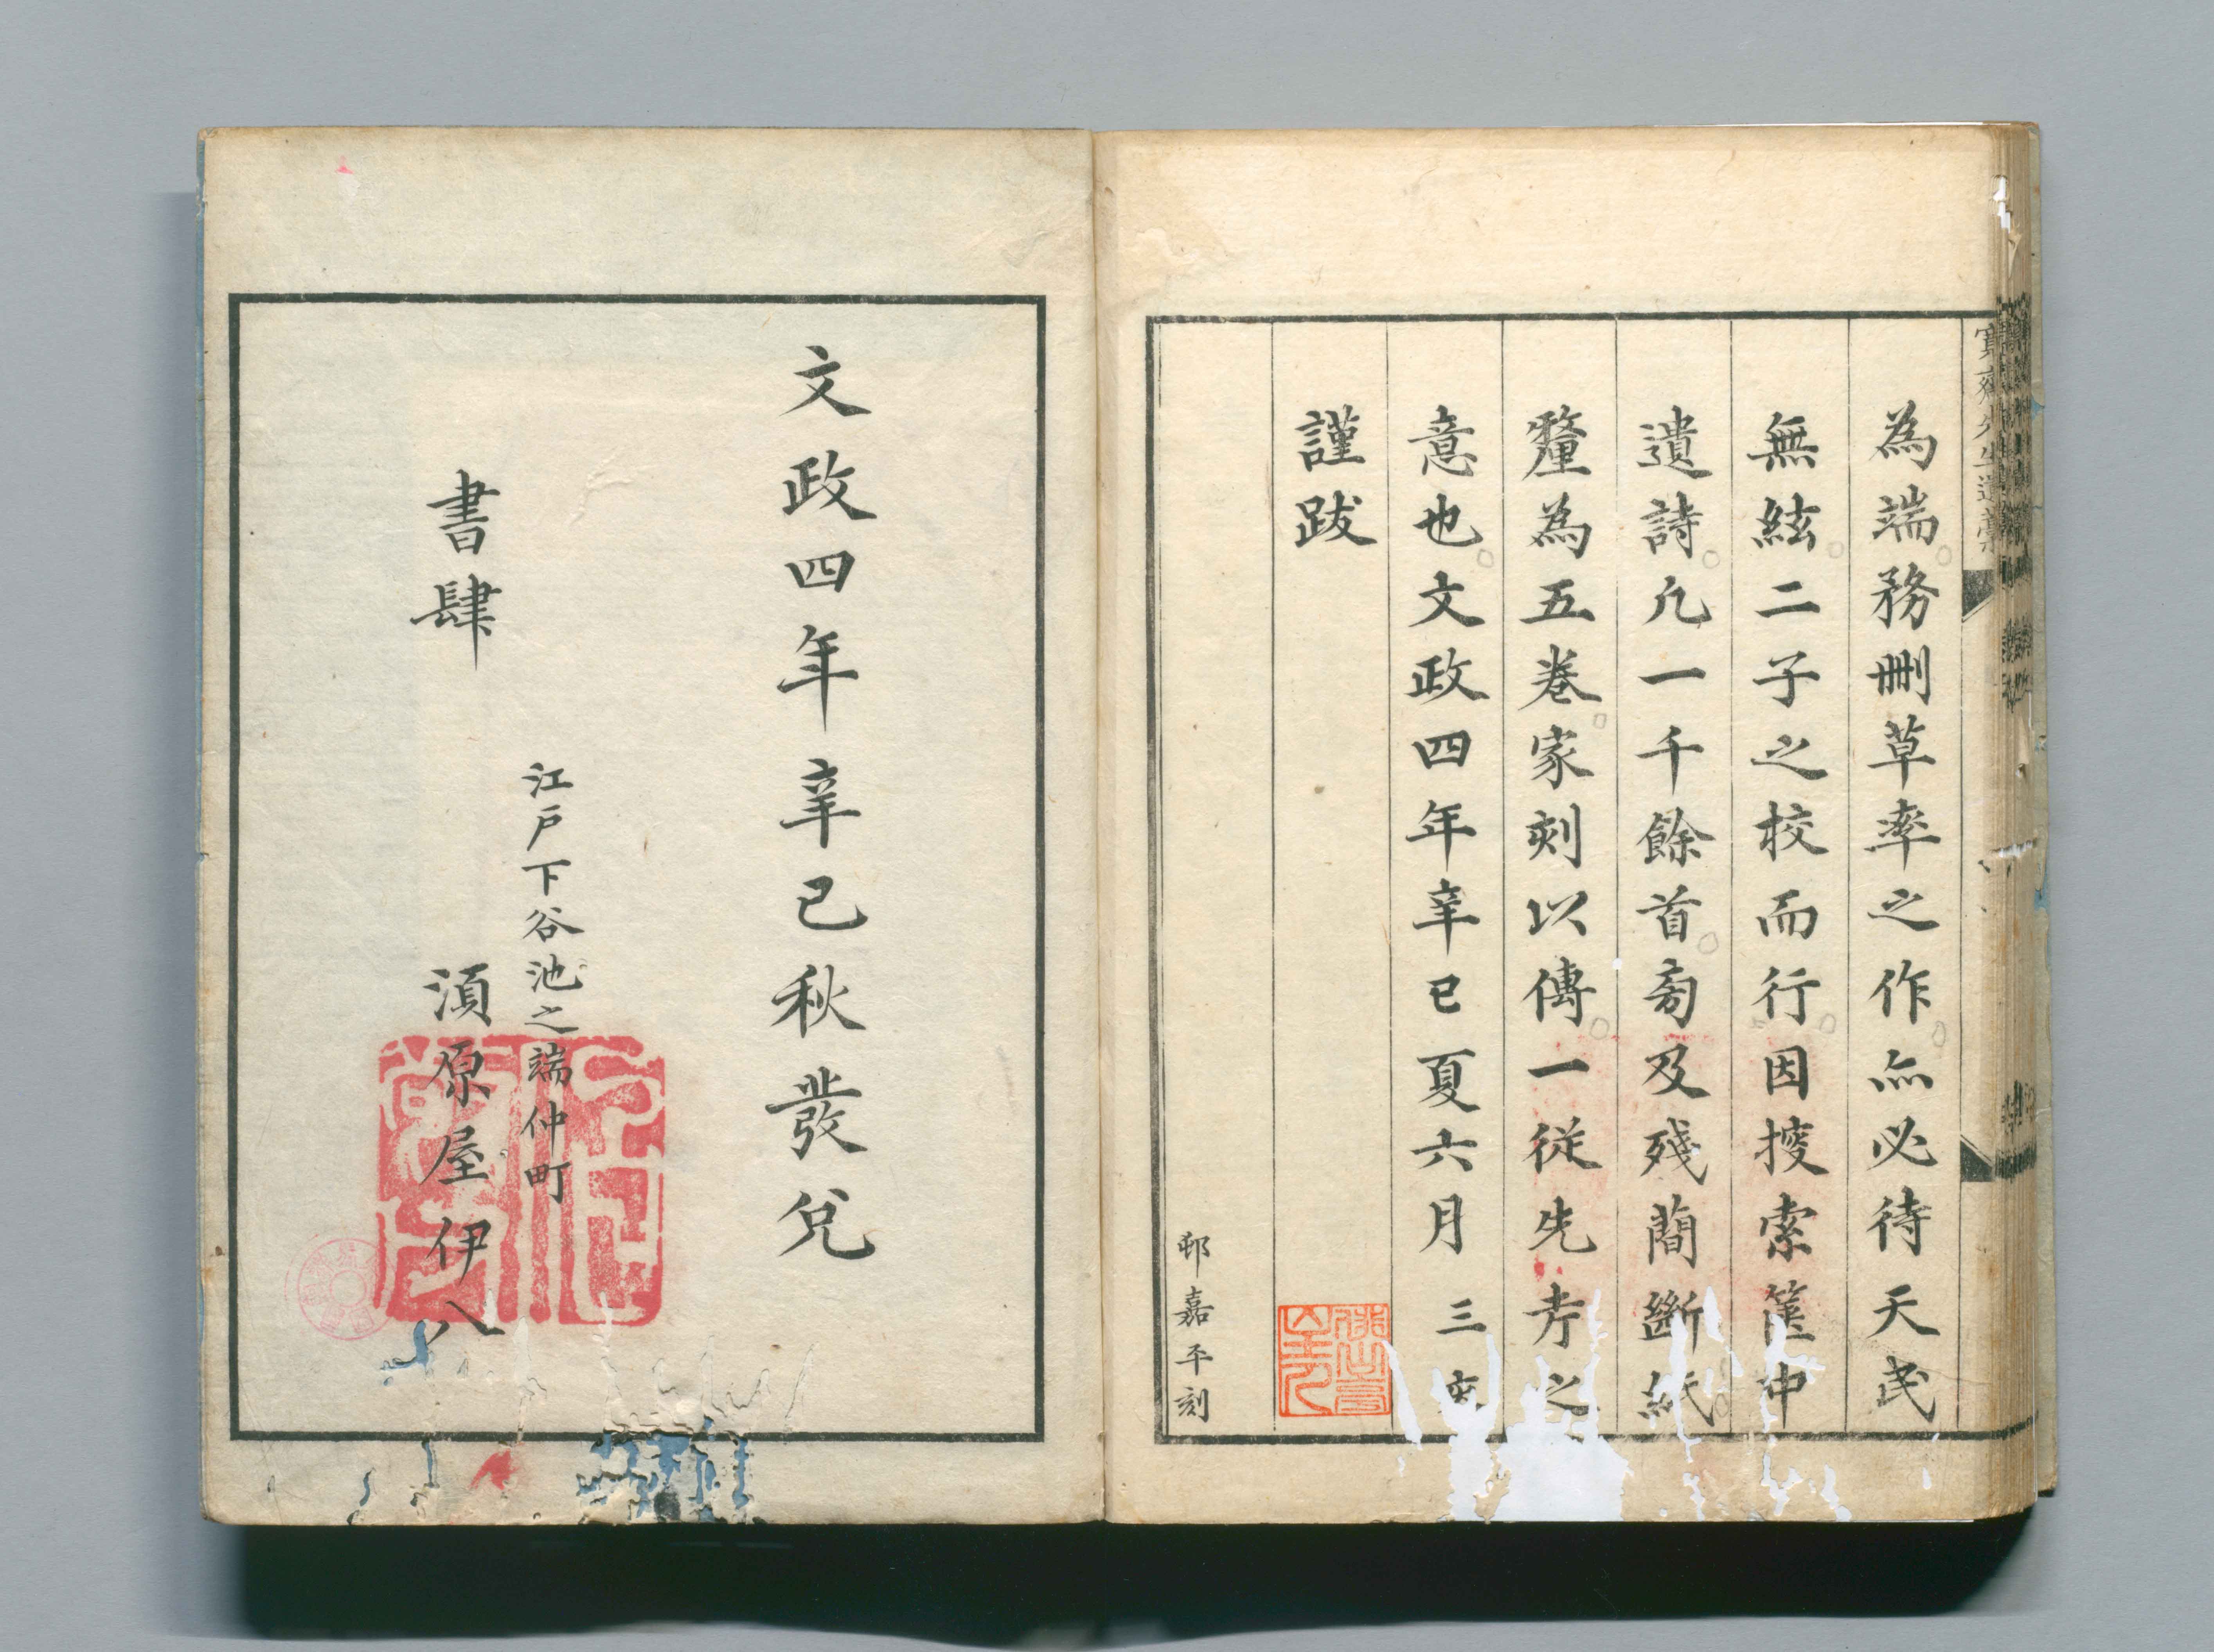 為端務刪草率之作亦必待天民
無絃二子之校而行因搜索篋中
遺詩凢一千餘首䓖及殘蕳斷紙
釐為五巻家刻以傳一從先考之
意也文政四年辛巳夏六月三亥
謹跋
邨嘉平刻
文政四年辛巳秋發兌
江戸下谷池之端仲町
書肆 湏原屋伊八